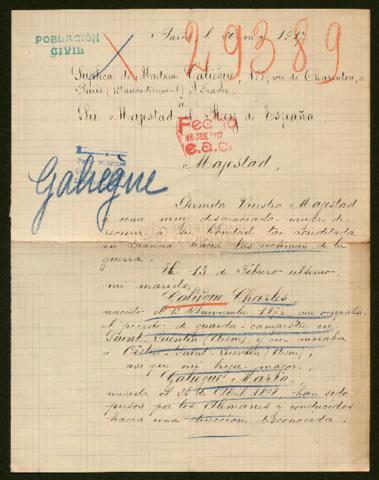 POBLACIÓN
CIVIL
29389
Suplica de Madame Galiègue, 171, rue de Charenton, a
Paris
a
Su Majestad el Rey de España
Fecho
e.a.c.
Majestad,
Galiegue
Permita Vuestra Majestad
a una muy desgraciada mujer de
recurir a su bondad tan acreditada
en Francia hacia las victimas de la
guerra.
El 13 de Febrero ultimo,
mi marido,
Galiègue Charles
nacido el
el puesto de guarda-campestre en
Saint-Quentin (Aisne), y que moraba
a Oëstre-Saint-Quentin (Aisne),
asi que mi hija mayor,
Galiègue Maria,
nacida el de Abril han sido
presos por los Alemanes y conducidos
hacia una direccion desconocida.